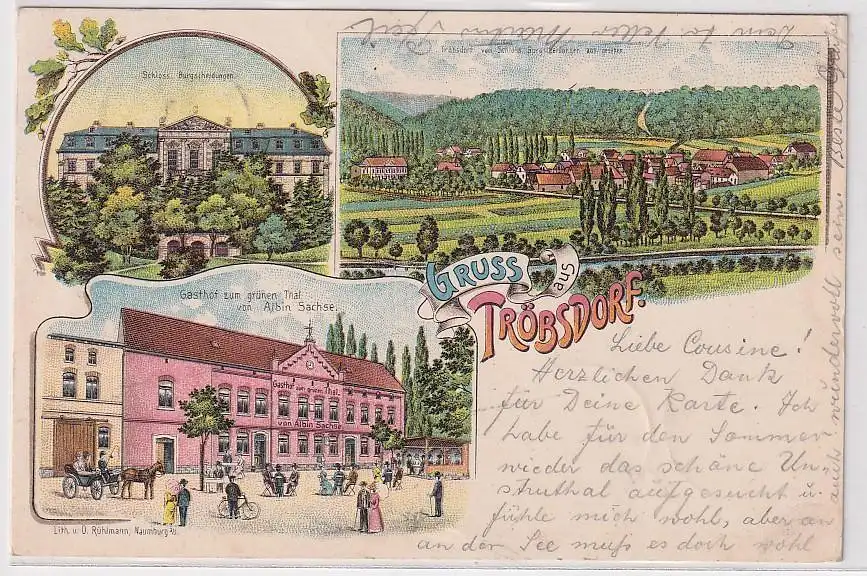 Schloss Burgscheidungen.
Tröbsdorf von Schloss Burgscheidungen aus gesehen
GRUSS
aus
TRÖBSDORF.
Gasthof zum grünen Thal
von Albin Sachse.
Gasthof zum grünen Thal
von Albin Sachse
Lith. u. D. Rühlmann, Naumburg a/S.
Liebe Cousine!
Herzlichen Dank
für Deine Karte. Ich
habe für den Sommer
wieder das schöne Un-
struthal aufgesucht u.
fühle mich wohl, aber an
an der See muß es doch wohl
auch wundervoll sein. Beste Grüße
Dein